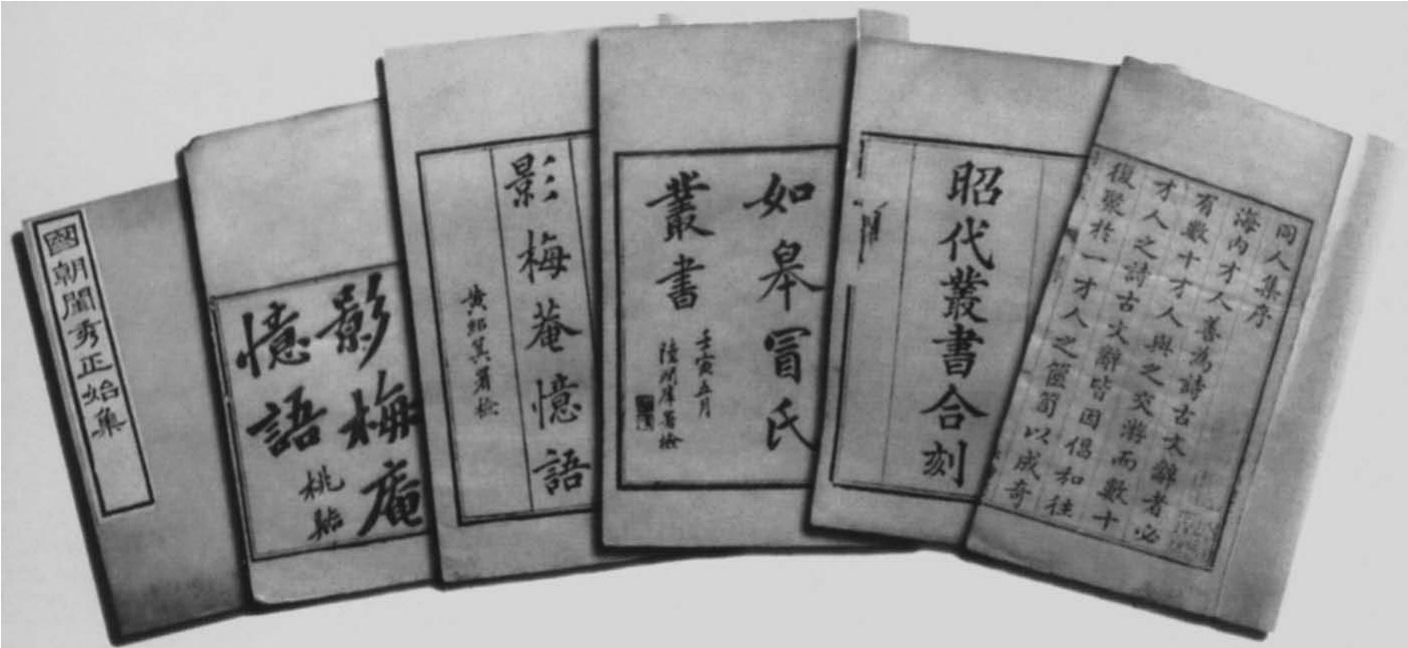 同人集序
海内才人善為詩古文辭者必
有數十才人與之交游而數十
才人之詩古文辭皆因倡和往
復聚於一才人之篋笥以成奇
昭代叢書合刻
如皋冒氏
叢書
壬寅五月
陸潤庠署檢
影梅菴憶語
黃紹箕署檢
影梅庵
憶語
國朝閨秀正始集